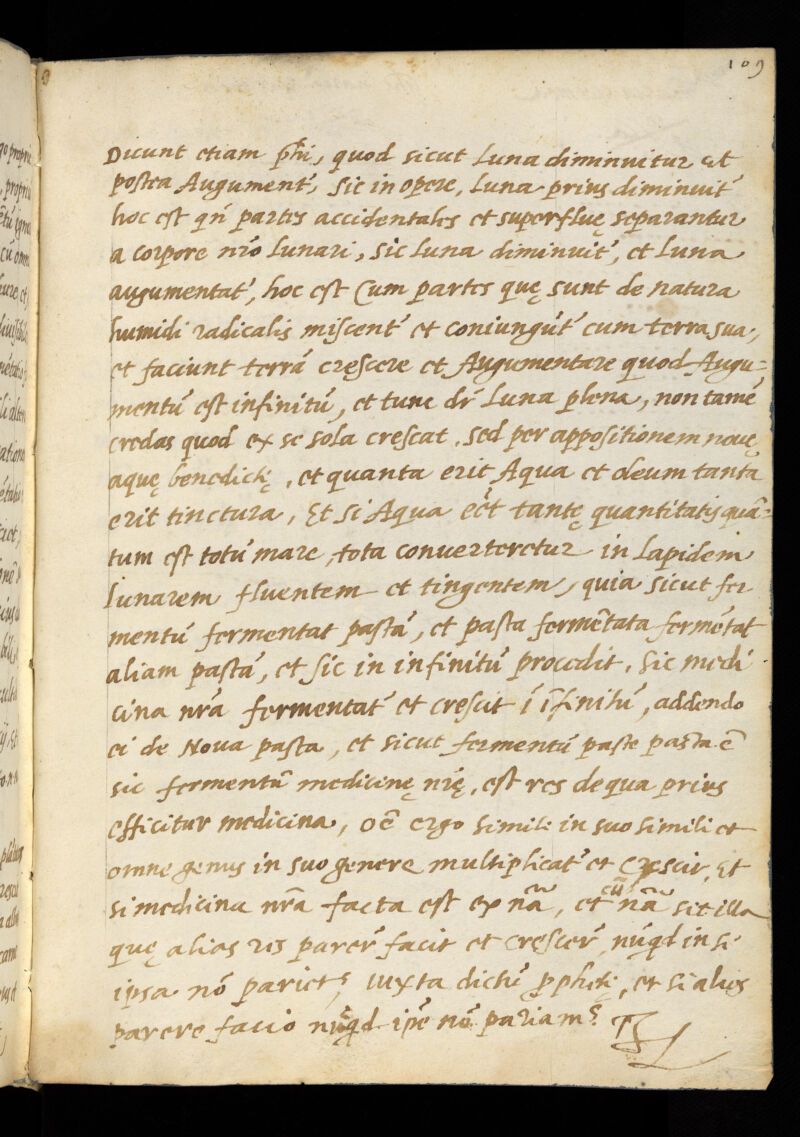 109
Dicunt etiam phi, quod sicut Luna diminuitur et
postea Augument', sic in opere, luna prius diminuit'
hoc est qn̄ partes accidentales et superfluę separantur
a corpore nr̄o lunari, sic luna diminuit', et luna
augumentat', hoc est Cum partes quę sunt de natura
humidi radicalis miscent' et coniungūt' cum terra sua,
et faciunt terrā cręscere et Augumentare quod Augu=
mentū est infinitū, et tunc dr̄ Luna plena, non tamē
credas quod ex se sola crescat, sed per appositionem nouę
aquę benedictę, et quanta erit Aqua et oleum tanta
erit tinctura, Et si Aqua eēt tantę quantitatis quā=
tum est totū mare, tota conuerteretur in lapidem
lunarem fluentem et tingentem, quia sicut fer
mentū fermentat pastā, et pasta fermētata fermētat
aliam pastā, et sic in infinitū procedit, sic medi
cina nr̄a fermentat' et crescit ī īfinitū, addendo
ei de Noua pasta, et sicut fermentū paste pasta ē
sic fermentū medicinę nr̄ę, est res de qua prius
efficitur medicina, oē ergo simile in suo simili et
omne genus in suo genere multiplicat' et crescit, Et
si medicina nr̄a facta est ex nā̄, et cū nā̄ sit illa
quę alias res parer' facit et crescer', nūqd in se
ipsa nō pariet? iuxta dictū pphetę, et si alios
parere facio nūqd ipē nō pariam?